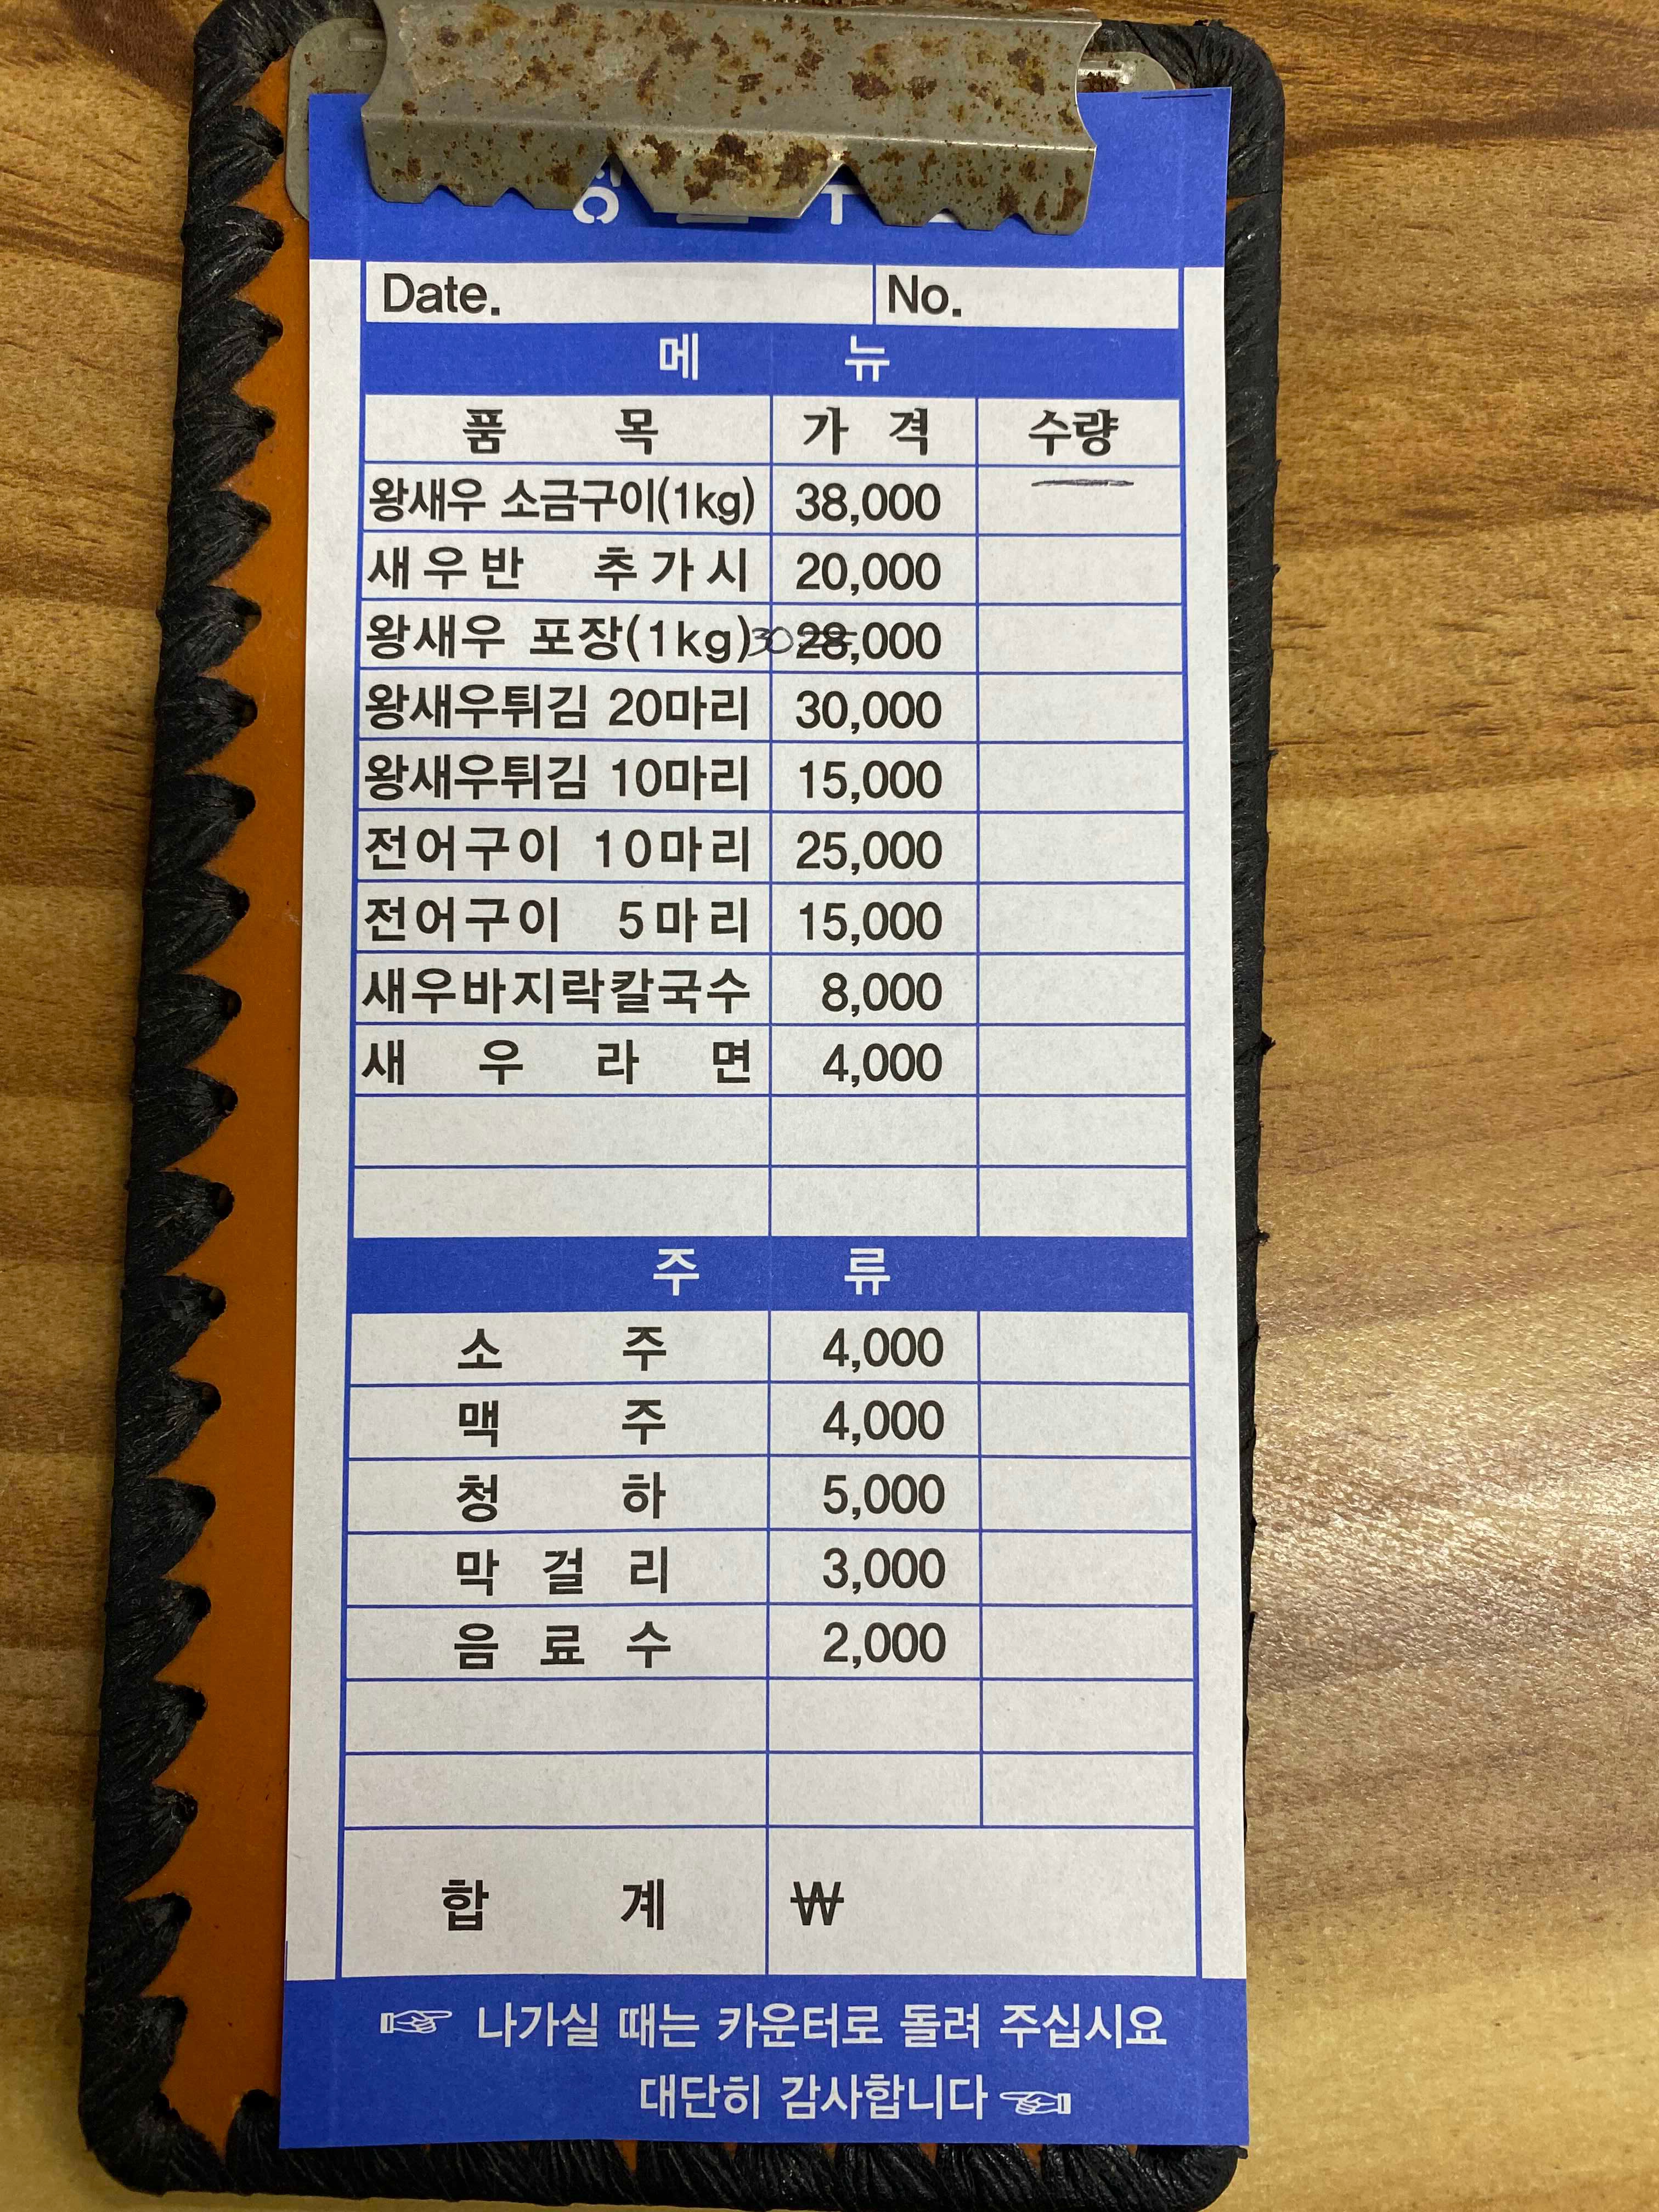 Date. No.
메 뉴
품 목 가 격 수량
왕새우 소금구이(1kg) 38,000
새우반 추가시 20,000
왕새우 포장(1kg) 30 28,000
왕새우튀김 20마리 30,000
왕새우튀김 10마리 15,000
전어구이 10마리 25,000
전어구이 5마리 15,000
새우바지락칼국수 8,000
새 우 라 면 4,000
주 류
소 주 4,000
맥 주 4,000
청 하 5,000
막 걸 리 3,000
음 료 수 2,000
합 계 ₩
☞ 나가실 때는 카운터로 돌려 주십시요
대단히 감사합니다 ☜